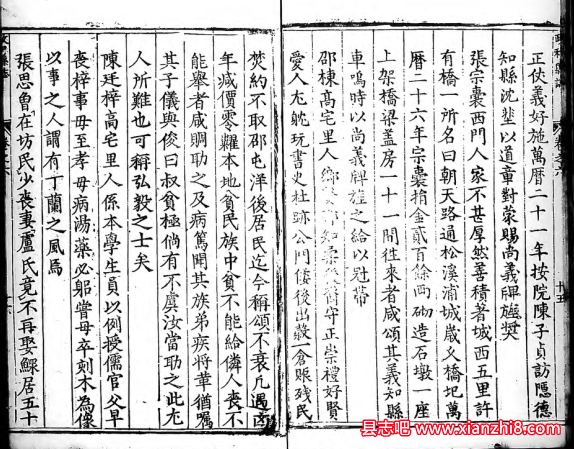 正仗義好施萬曆二十一年按院陳子貞訪隱德
知縣沈埜以道童對蒙賜尚義牌匾獎
張宗橐西門人家不甚厚然善積著城西五里許
有橋一所名曰朝天路通松溪浦城歲久橋圯萬
曆二十六年宗橐捐金貳百餘兩砌造石墩一座
上架橋梁蓋房一十一間往來者咸頌其義知縣
車鳴時以尚義牌旌之給以冠帶
邵棟高宅里人
守正崇禮好賢
愛人尤耽玩書史杜跡公門倭後出穀一倉賑殘民
焚約不取邵屯洋後居民迄今稱頌不衰凡遇荒
年減價零糶本地貧民族中貧不能給憐人喪不
能舉者咸賙助之及病篤開其族弟疾將革猶囑
其子儀與俊曰叔貧極倘有不虞汝當助之此尤
人所難也可稱弘毅之士矣
陳廷梓高宅里人係本學生員以例授儒官父早
喪梓事母至孝母病湯藥必躬嘗母卒刻木為像
以事之人謂有丁蘭之風焉
張思曾在坊民少喪妻盧氏竟不再娶鰥居五十
十五
十六
县志吧 www.xianzhi8.com